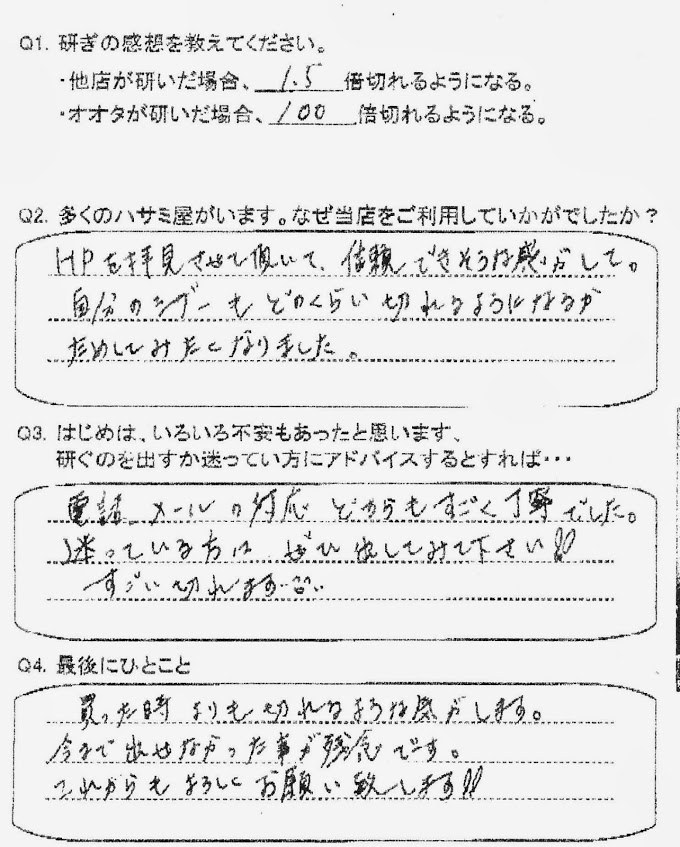 Q1. 研ぎの感想を教えてください。
・他店が研いだ場合、 1.5 倍切れるようになる。
・オオタが研いだ場合、 100 倍切れるようになる。
Q2. 多くのハサミ屋がいます。なぜ当店をご利用していかがでしたか?
HPを拝見させて頂いて、信頼できそうな感じがして。
自分のシザーもどのくらい切れるようになるか
ためしてみたくなりました。
Q3. はじめは、いろいろ不安もあったと思います、
研ぐのを出すか迷ってい方にアドバイスするとすれば・・・
電話、メールの対応どちらもすごく丁寧でした。
迷っている方は ぜひ出してみて下さい!!
すごい切れます
Q4. 最後にひとこと
買った時よりも切れるような感じがします。
今まで出せなかった事が残念です。
これからもよろしくお願い致します!!